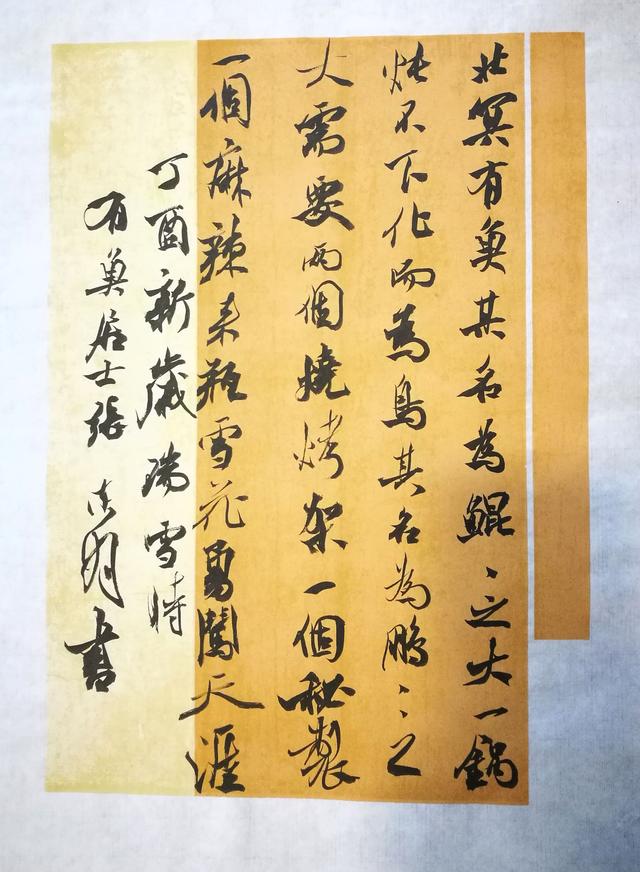 北冥有魚其名为鯤〻之大一鍋
炖不下化而為鳥其名為鵬〻之
大需要兩個燒烤架一個秘製
一個麻辣来瓶雪花勇闖天涯
丁酉新歲瑞雪時
有魚居士張 明書